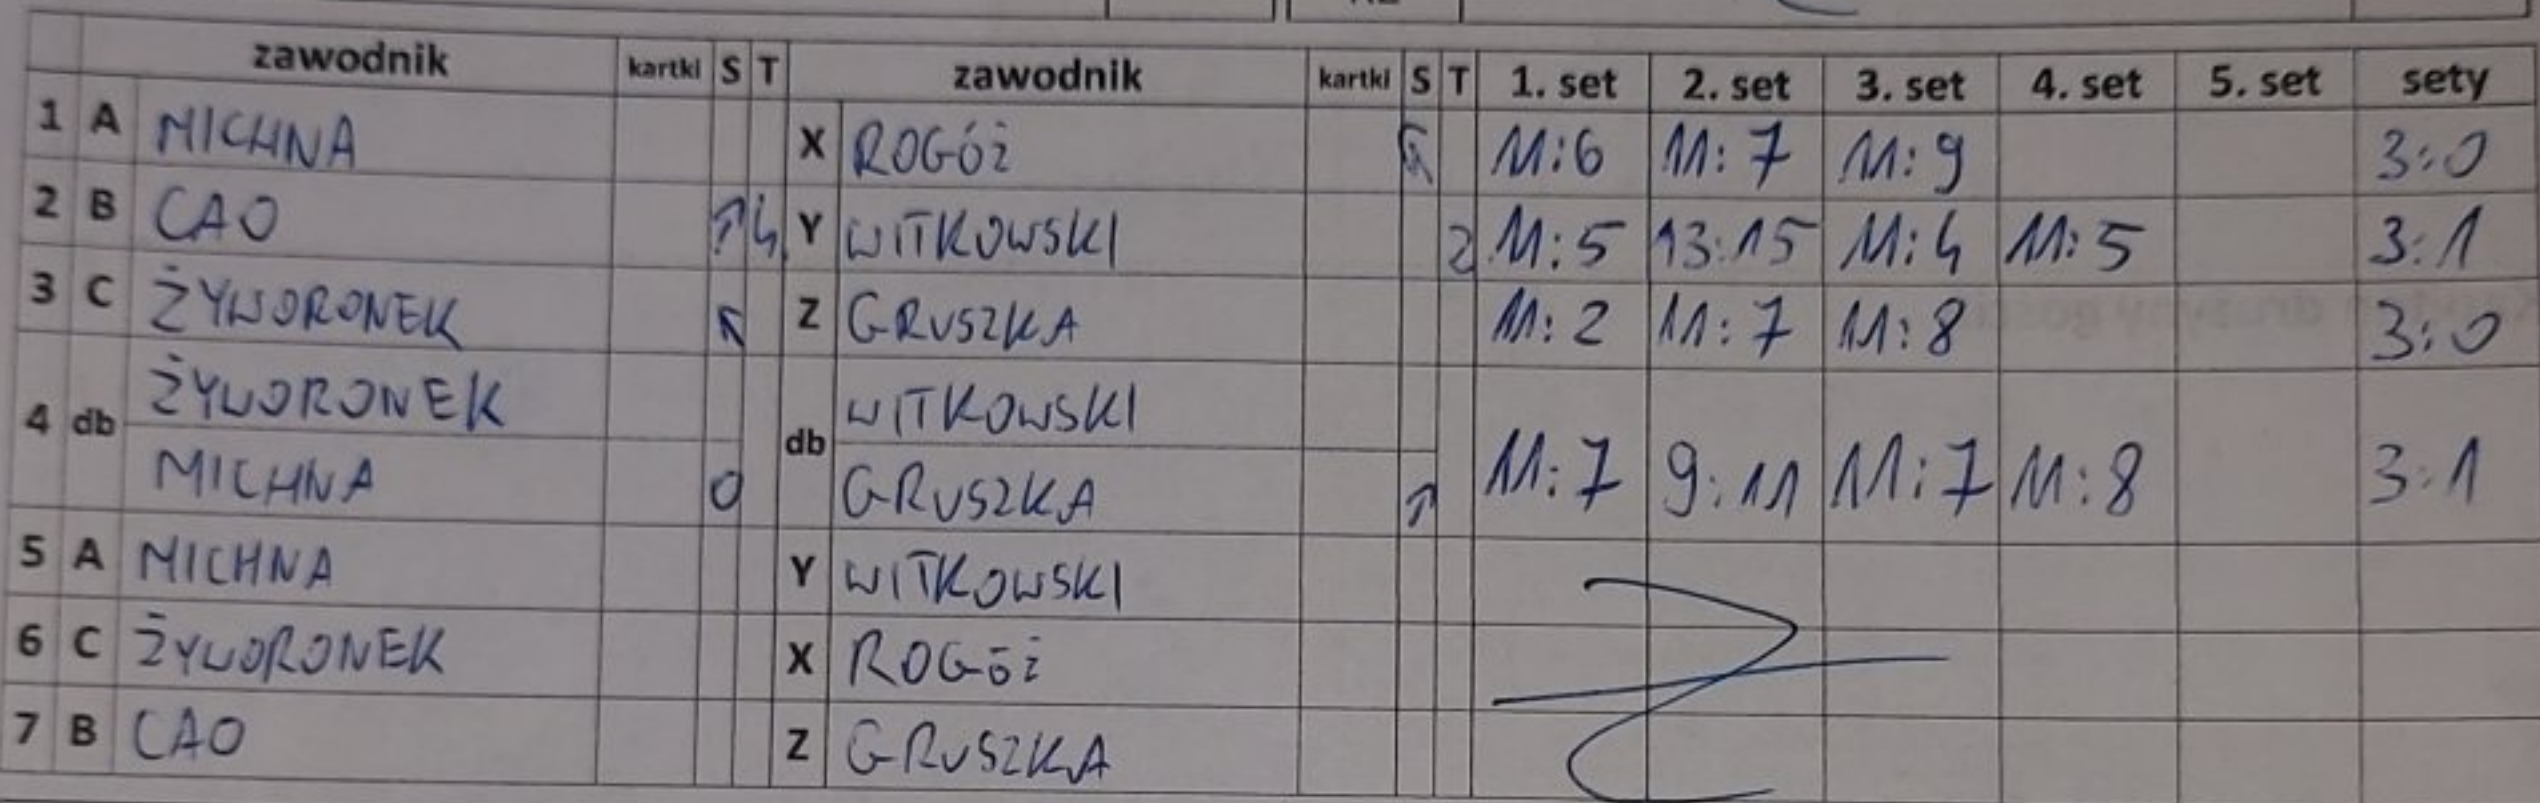 zawodnik kartki S T zawodnik kartki S T 1. set 2. set 3. set 4. set 5. set sety
1 A MICHNA X ROGÓŻ 11:6 11:7 11:9 3:0
2 B CAO 4 Y WITKOWSKI 2 11:5 13:15 11:4 11:5 3:1
3 C ŻYWORONEK Z GRUSZKA 11:2 11:7 11:8 3:0
4 db ŻYWORONEK db WITKOWSKI 11:7 9:11 11:7 11:8 3:1
MICHNA GRUSZKA
5 A MICHNA Y WITKOWSKI
6 C ŻYWORONEK X ROGÓŻ
7 B CAO Z GRUSZKA